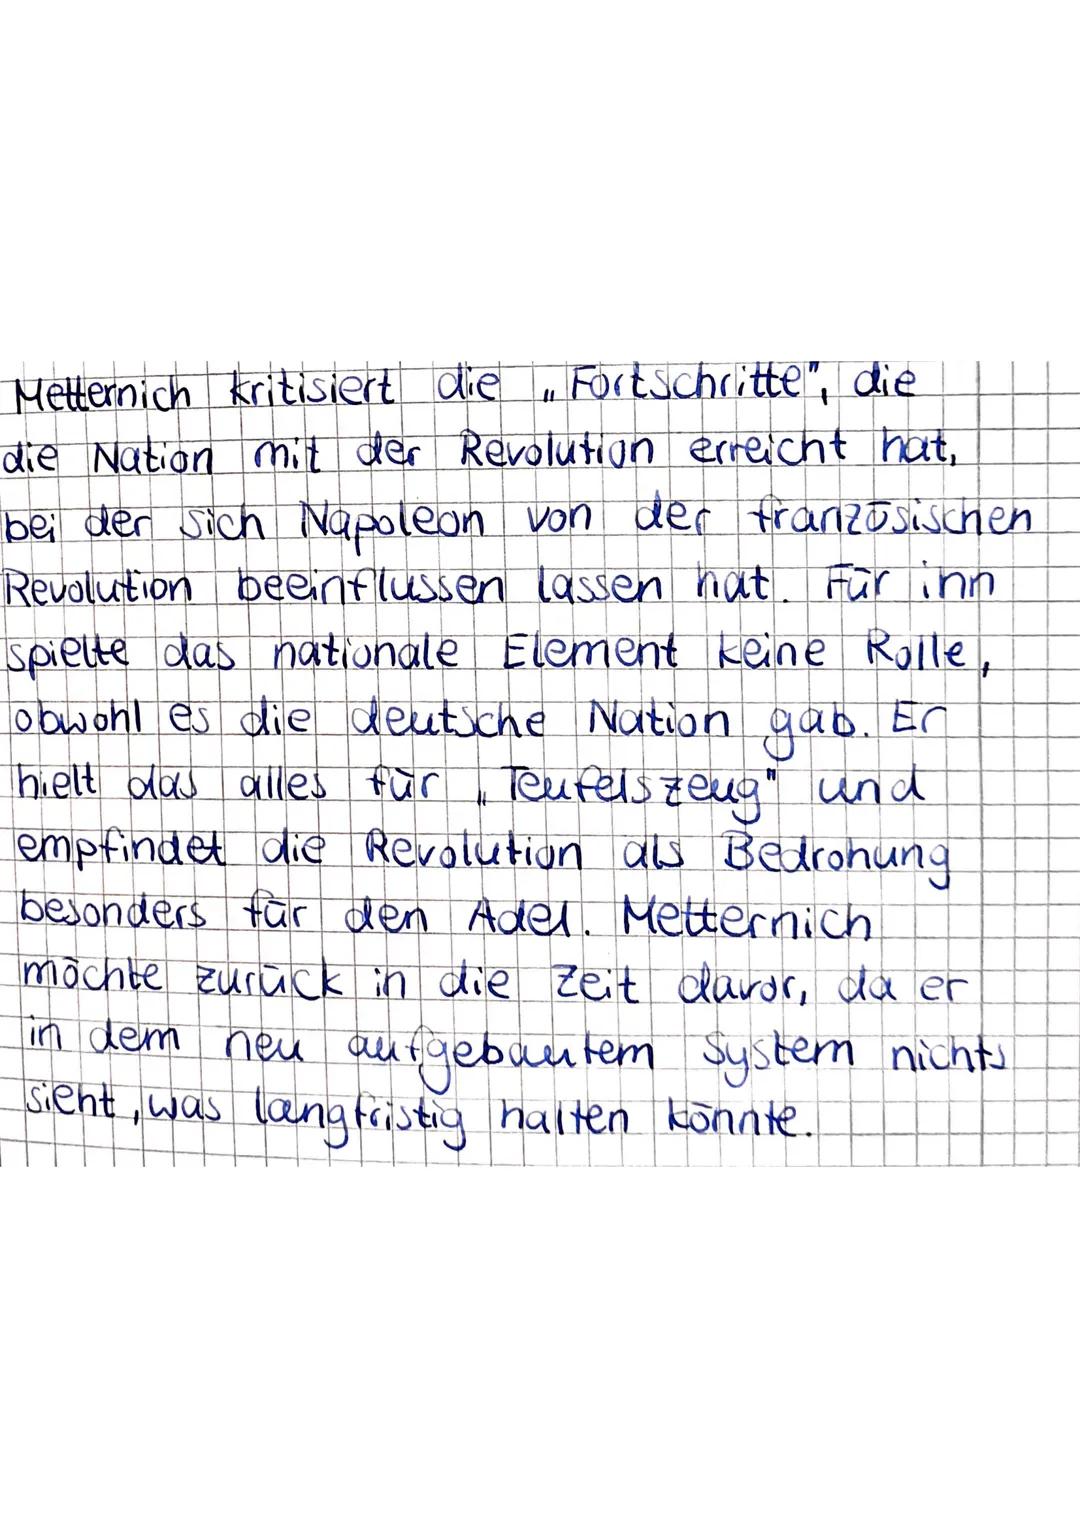 Metternich kritisiert die „Fortschritte", die
die Nation mit der Revolution erreicht hat,
bei der sich Napoleon von der französischen
Revolution beeinflussen lassen hat. Für ihn
spielte das nationale Element keine Rolle,
obwohl es die deutsche Nation gab. Er
hielt das alles für „Teufelszeug" und
empfindet die Revolution als Bedrohung
besonders für den Adel. Metternich
möchte zurück in die Zeit davor, da er
in dem neu aufgebautem System nichts
sieht, was langfristig halten könnte.